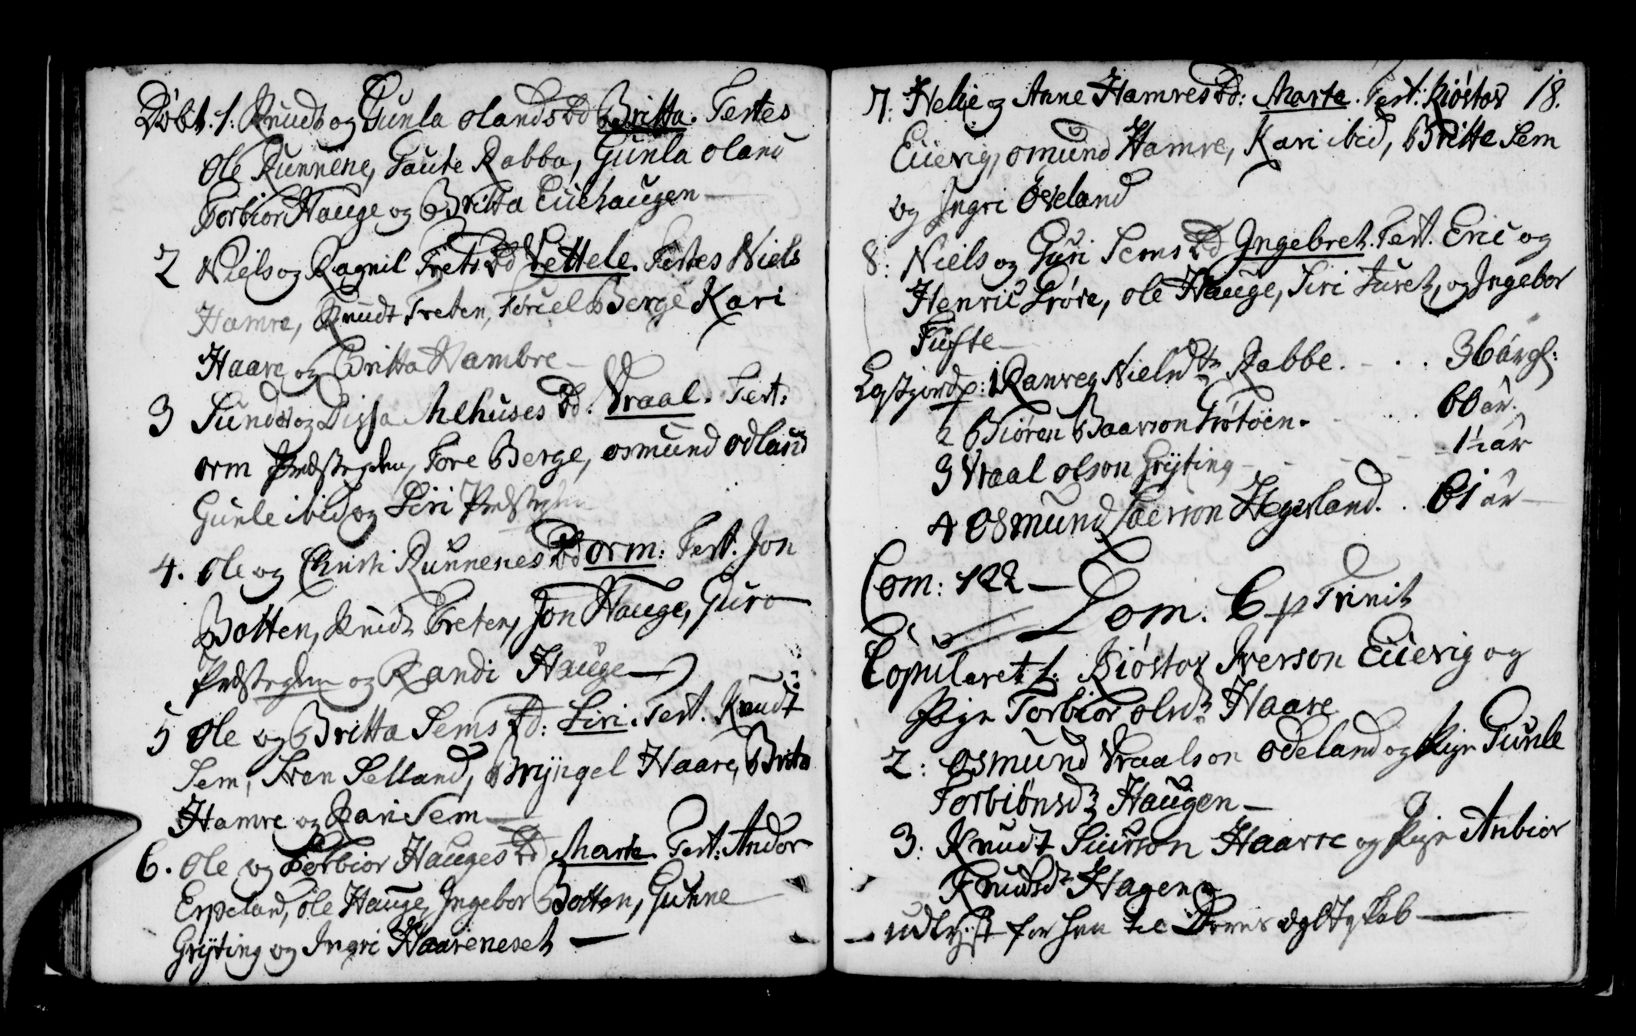 Döbt. 1. Knudt og Gunla Olands Bd Britta. Testes
Ole Runnene, Gaute Rabba, Gunla Oland
Torbior Hauge og Britta Euehaugen
2 Niels og Ragnil Frets Bd Vettele. Testes Niels
Hamre, Knudt Freten, Toriel Berge Kari
Haare og Britta Hambre
3 Siundt og Dissa Mehuses Bd. Vraal. Test:
orm Præstegden, Tore Berge, osmund odland
Gunle ibid og Siri
4. Ole og Christi Runnenes Bd orm: Test. Jon
Botten, Knudt Freten, Jon Hauge, Guro
Præstegden og Randi Hauge
5 Ole og Britta Sems Bd: Siri. Test. Knudt
Sem, Sven Selland, Bryngel Haare, Brita
Hamre og Kari Sem
6. Ole og Torbior Hauges Bd Marte Test: Andor
Erpeland, ole Hauge, Ingebor Botten, Guhne
Gryting og Ingri Haareneset
18.
7. Helje og Anne Hamres Bd: Marte. Test: Kiöstol
Euevig, omund Hamre, Kari ibid, Britte Sem
og Ingri Öveland
8: Niels og Guri Sems Bd Ingebret. Test. Eric og
Henric Gröve, ole Hauge, Siri Juret, og Ingebor
Tufte
1 Ranveg Nielsdtr Rabbe. - . . 36 år gl:
2 Biören Baarson Grötöen. . . 60 år.
3 Vraal olson Gryting - - - - 1½ år
4 osmund Hegerland. . . 61 år
Com: 122
Dom. 6 p Trinit
Copuleret 1. Kiöstol Iverson Euevig og
Pige Torbior olsdr Haare
2: osmund Vraalson odeland og Pige Gunle
Torbiönsdr Haugen
3: Knudt Siurson Haarre og Pige Anbior
Knudsdr Hagen
til Egteskab